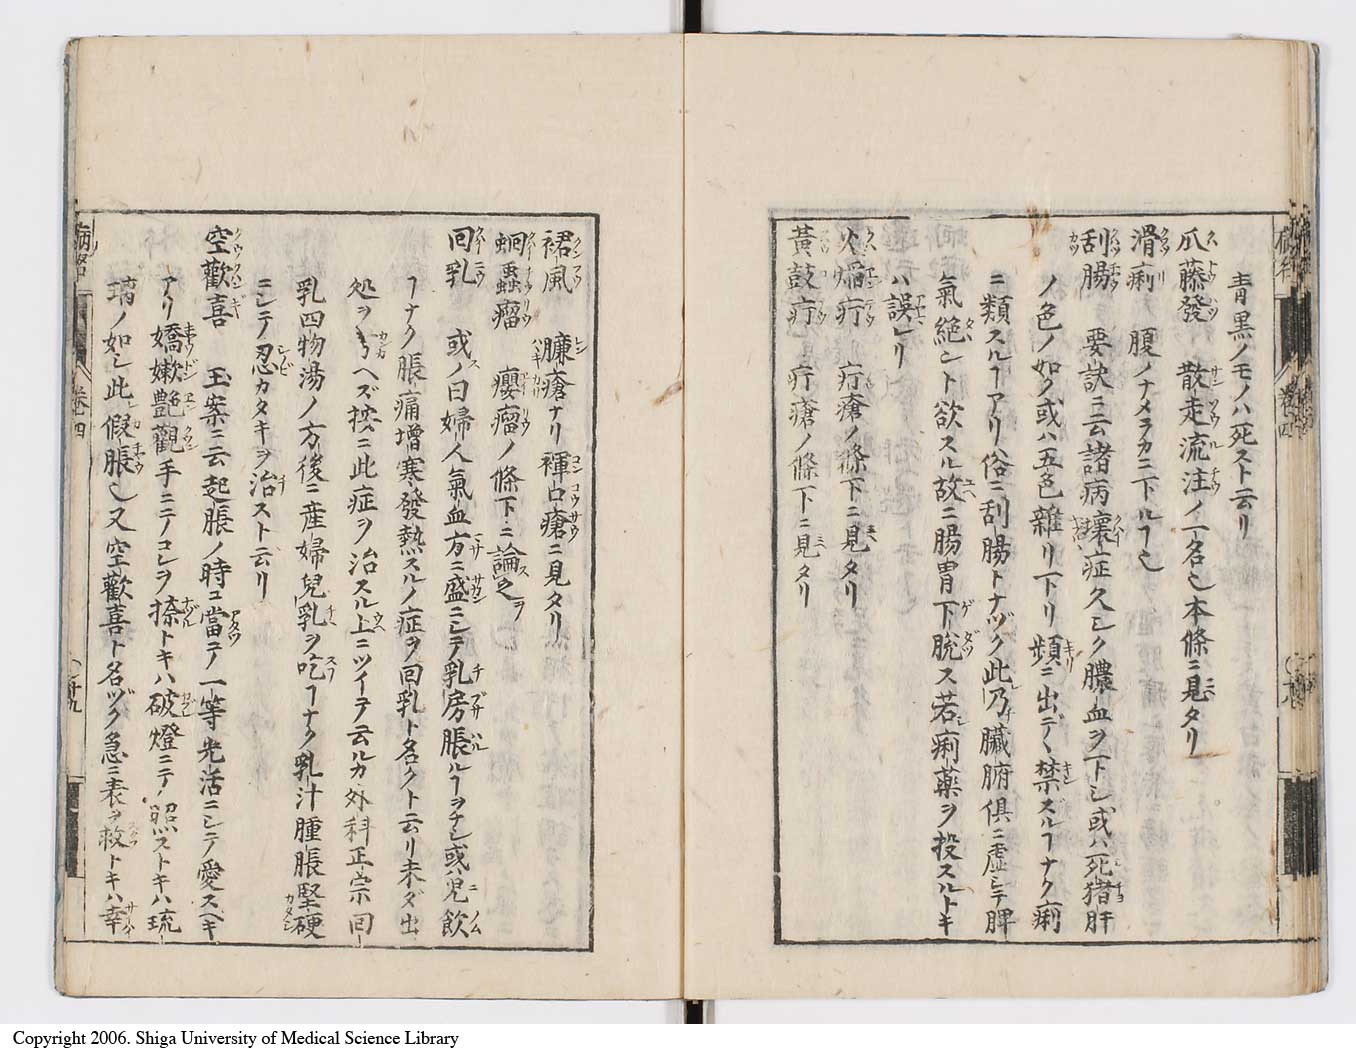 青黒ノモノハ死スト云リ
爪藤發 散走流注ノ一名也本條ニ見タリ
滑痢 腹ノナメラカニ下ルヿ也
刮腸 要訣ニ云諸病壞症久シク膿血ヲ下シ或ハ死猪肝
ノ色ノ如ク或ハ五色雜リ下リ頻ニ出デヽ禁スルヿナク痢
ニ類スルヿアリ俗ニ刮腸トナヅク此乃臟腑俱ニ虛シテ脾
氣絶ント欲スル故ニ腸胃下脫ス若痢薬ヲ投スルトキ
ハ誤レリ
火焰疔 疔瘡ノ條下ニ見タリ
黃鼓疔 疔瘡ノ條下ニ見タリ
裙風 臁瘡ナリ褌口瘡ニ見タリ
蛔蟲瘤 癭瘤ノ條下ニ論之
回乳 或ノ曰婦人氣血方ニ盛ニシテ乳房脹ルヿヲナシ或ハ児飲
ヿナク脹痛增寒發熱スルノ症ヲ回乳ト名クト云リ未ダ出
処ヲヘズ按ニ此症ヲ治スル上ニツイヲ云ルカ外科正宗回
乳四物湯ノ方後ニ産婦兒乳ヲ吃ヿナク乳汁腫脹堅硬
ニシテ忍カタキヲ治スト云リ
空歡喜 玉案ニ云起脹ノ時ニ當テ一等光活ニシテ愛スヘキ
アリ嬌嫩艶觀手ニテコレヲ捺トキハ破燈ニテ照ストキハ琉
璃ノ如シ此假脹也又空歡喜ト名ヅク急ニ表ヲ救トキハ幸
卷四
卷四